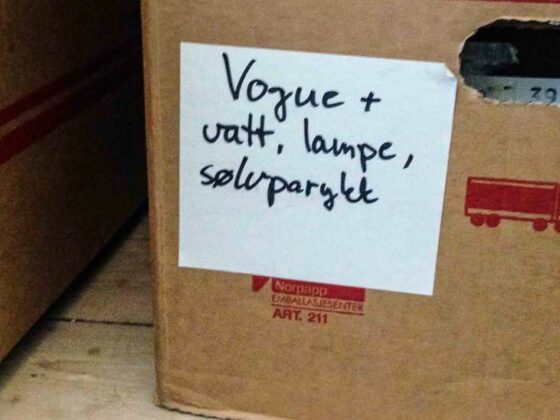 Vogue +
vatt, lampe,
sølvparykk
39
Norpapp
EMBALLASJESENTER
ART. 211